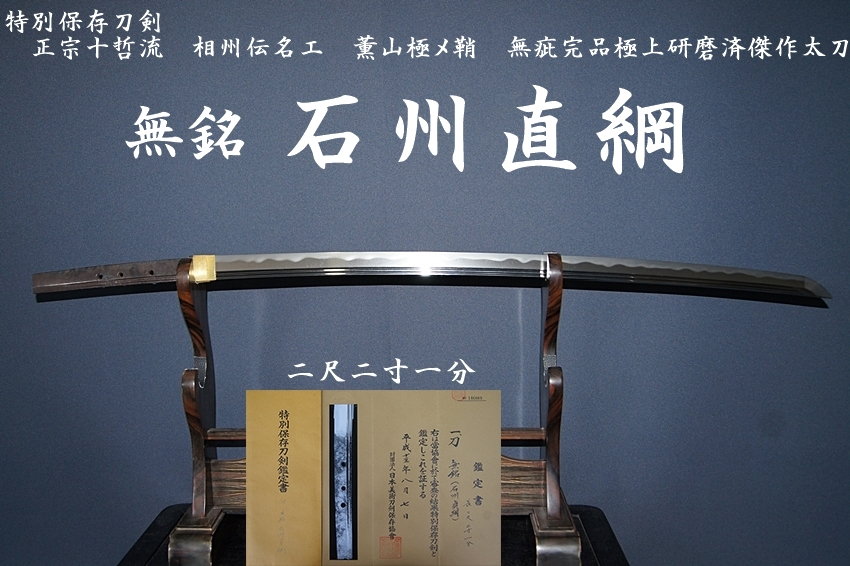 特別保存刀剣
正宗十哲流　相州伝名工　薫山極〆鞘　無疵完品極上研磨済傑作太刀
無銘 石州直綱
二尺二寸一分
特別保存刀剣鑑定書
鑑定書
一刀 無銘(石州直綱)
右は当協会に於て審査の結果特別保存刀剣と
鑑定しこれを証する
平成十五年八月七日
財団法人日本美術刀剣保存協会